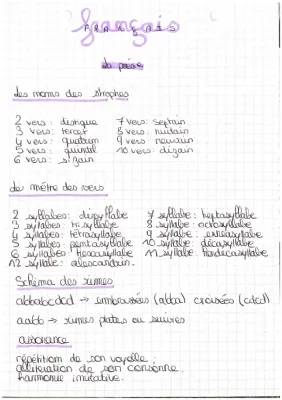 français
FRANÇAIS
La poésie
Les noms des strophes
2 vers : distique
3 vers : tercet
4 vers : quatrain
5 vers : quintil
6 vers : sizain
7 vers : septain
8 vers : huitain
9 vers : neuvain
10 vers : dizain
Le mètre des vers
2 syllabes : dissyllabe
3 syllabes : trisyllabe
4 syllabes : tétrasyllabe
5 syllabes : pentasyllabe
6 syllabes : hexasyllabe
12 syllabe : alexandrain.
7 syllabe : heptasyllabe
8 syllabe : octosyllabe
9 syllabe : enneasyllabe
10 syllabe : décasyllabe
11 syllabe : hendecasyllabe
Schéma des rimes
abbabcdcd → embrassées (abba) croisées (cdcd)
aabb → rimes plates ou suivies
assonance
répétition de son voyelle ;
allitération de son consonne.
harmonie imitative.